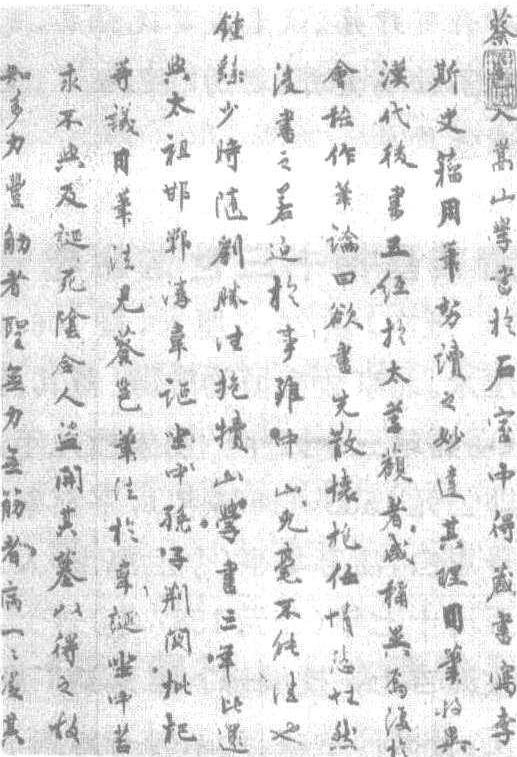 蔡入嵩山學書於石室中得藏書寫李
斯史籀用筆勢讀之妙達其理用筆特異
漢代後書五經於太學觀者咸稱異焉復於
會稽作筆論曰欲書先散懷抱任情恣性然
後書之若迫於事雖中山兔毫不能佳也
鍾繇少時隨劉勝往抱犢山學書三年比還
與太祖邯鄲淳韋誕坐中孫子荊關枇杷
等議用筆法見蔡邕筆法於韋誕坐中苦
求不與及誕死陰令人盜開其墓以得之故
知多力豐筋者聖無力無筋者病一一從其